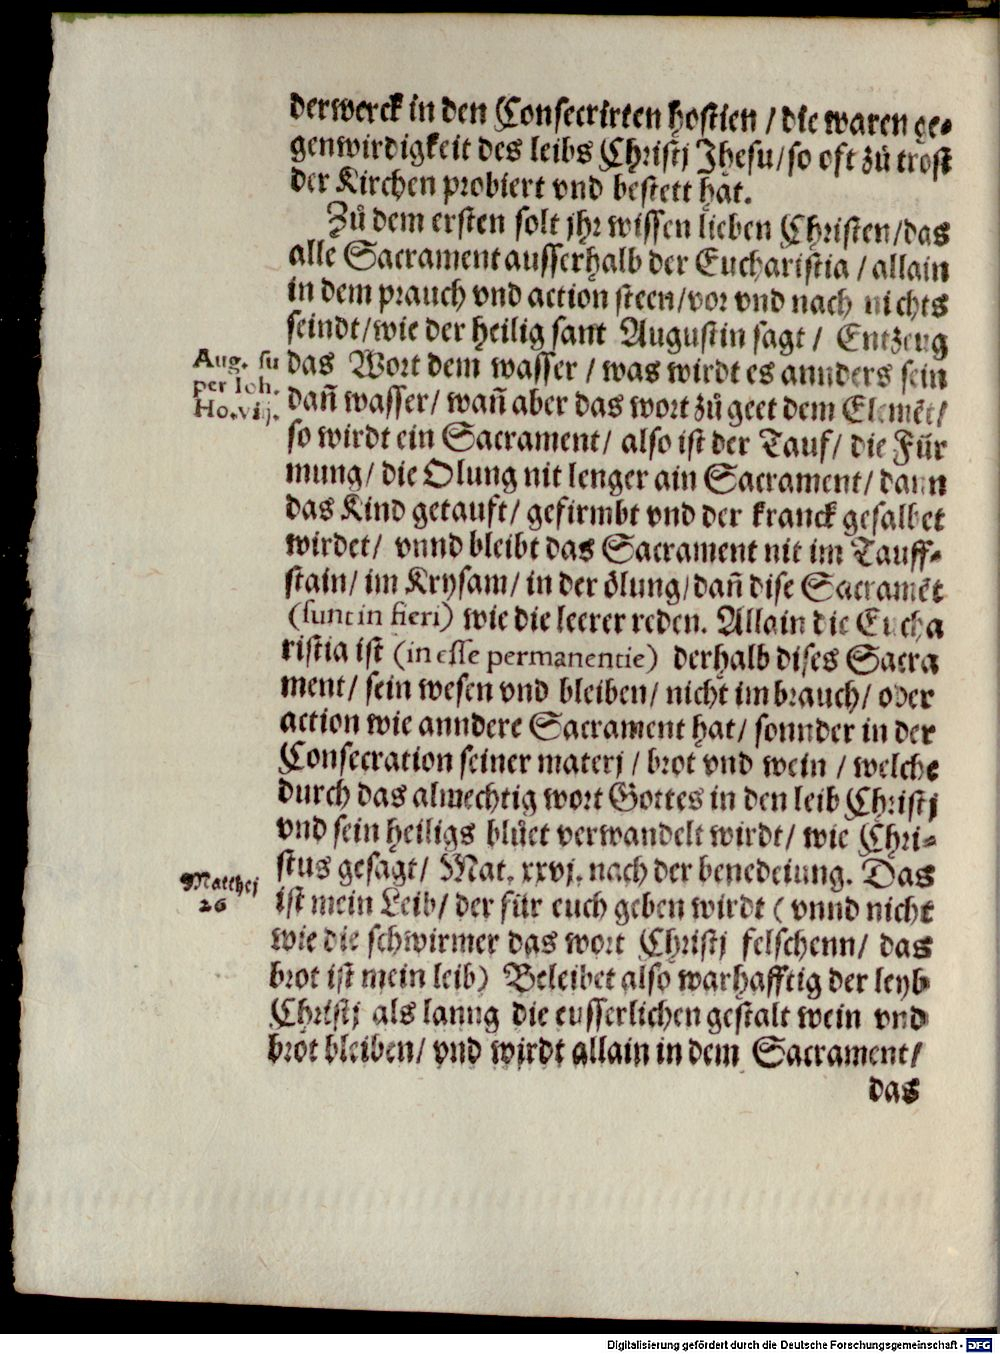 derwerck in den Consecrirten hostien / die waren ge-
genwirdigkeit des leibs Christj Jhesu/ so oft zů trost
der Kirchen probiert vnd bestett hat.
Zů dem ersten solt jhr wissen lieben Christen/das
alle Sacrament ausserhalb der Eucharistia / allain
in dem prauch vnd action steen/vor vnd nach nichts
seindt/wie der heilig sant Augustin sagt / Entzeug
Aug. su
per Ioh.
Ho.viij.
das Wort dem wasser / was wirdt es annders sein
dañ wasser/ wañ aber das wort zů geet dem Elemēt/
so wirdt ein Sacrament/ also ist der Tauf/ die Für
mung/ die Olung nit lenger ain Sacrament/ dann
das Kind getauft/ gefirmbt vnd der kranck gesalbet
wirdet/ vnnd bleibt das Sacrament nit im Tauff-
stain/ im Krysam/ in der ölung/dañ dise Sacramēt
(sunt in fieri) wie die leerer reden. Allain die Eucha
ristia ist (in esse permanentie) derhalb dises Sacra
ment/ sein wesen vnd bleiben/ nicht im brauch/ oder
action wie anndere Sacrament hat/ sonnder in der
Consecration seiner materj / brot vnd wein / welche
durch das almechtig wort Gottes in den leib Christj
vnd sein heiligs blůet verwandelt wirdt/ wie Chri-
stus gesagt/ Mat. xxvj. nach der benedeiung. Das
Matthej
26
ist mein Leib/ der für euch geben wirdt ( vnnd nicht
wie die schwirmer das wort Christj felschenn/ das
brot ist mein leib) Beleibet also warhafftig der leyb
Christj als lanng die eusserlichen gestalt wein vnd
brot bleiben/ vnd wirdt allain in dem Sacrament/
das
Digitalisierung gefördert durch die Deutsche Forschungsgemeinschaft - DFG